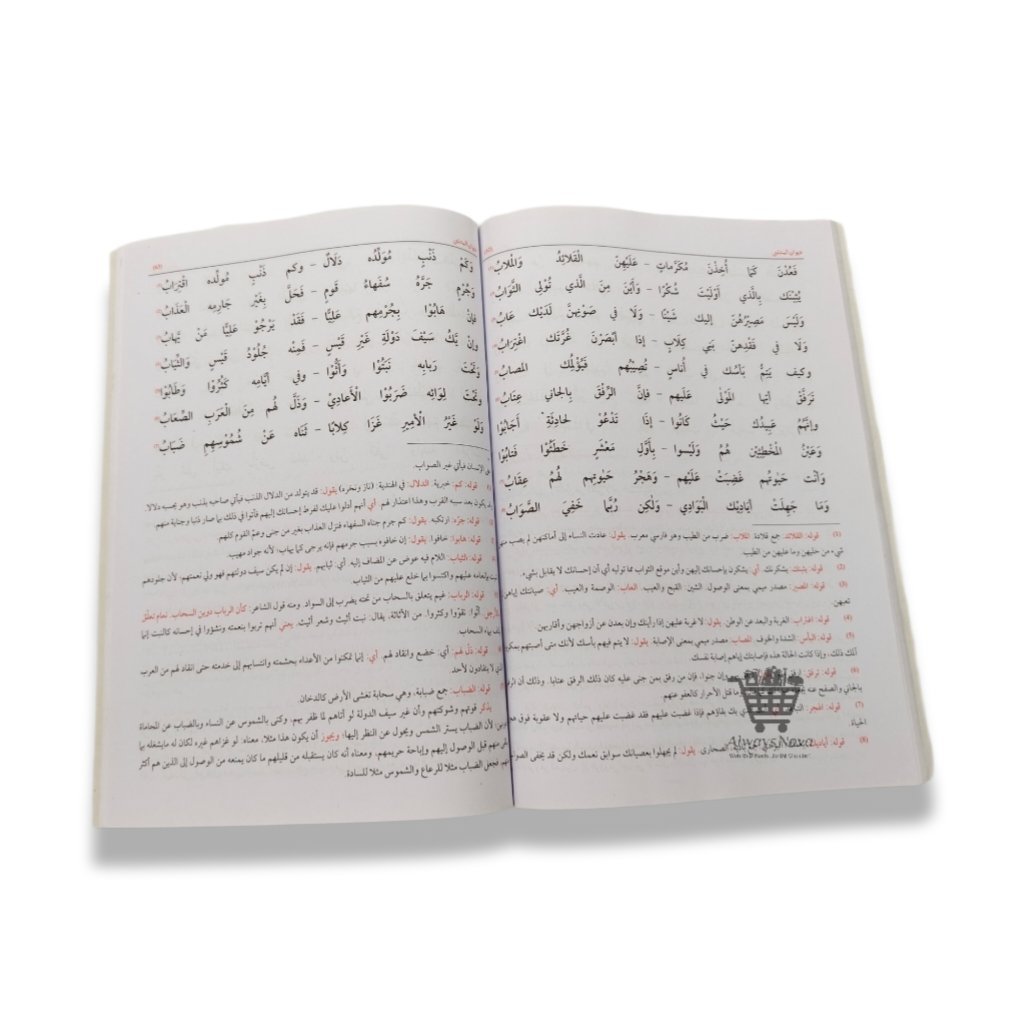 ديوان المتنبي
فَعُدْنَ كَمَا أُخِذْنَ مُكَرَّمَاتٍ – عَلَيْهِنَّ الْقَلَائِدُ وَالْمَلَابُ
يُثِبْنَكَ بِالَّذِي أَوْلَيْتَ شُكْرًا – وَأَيْنَ مِنَ الَّذِي تُوْلِي الثَّوَابُ
وَلَيْسَ مَصِيْرُهُنَّ إليك شَيْنًا – وَلَا فِي صَوْنِهِنَّ لَدَيْكَ عَابُ
وَلَا فِي فَقْدِهِنَّ بَنِي كِلَابٍ – إِذَا أَبْصَرْنَ غُرَّتَكَ اغْتِرَابُ
وكيف يَتِمُّ بَأْسُكَ فِي أُنَاسٍ – تُصِيْبُهُم فَيُؤْلِمُكَ المصابُ
تَرَفَّقْ أيُّها المَوْلَى عَلَيهِم – فَإِنَّ الرِّفْقَ بِالجاني عِتَابُ
وإِنَّهُمُ عَبِيدُكَ حَيْثُ كَانُوا – إِذَا تَدْعُوْ لحادِثَةٍ أَجَابُوا
وَعَيْنُ الْمُخْطِئِيْنَ هُمُ وَلَيْسوا – بِأَوَّلِ مَعْشَرٍ خَطَئُوْا فَتَابُوا
وَأَنْتَ حَيوتُهم غَضِبَتْ عَلَيْهِم – وَهَجْرُ حَيوتِهِم لَهُمُ عِقَابُ
وَمَا جَهِلَتْ أَيَادِيَكَ الْبَوَادِي – وَلَكِن رُبَّمَا خَفِيَ الصَّوَابُ
(1) قوله: القلائد: جمع قلادة. الملاب: ضرب من الطيب وهو فارسي معرب. يقول: عادت النساء إلى أماكنهن لم يصب منهن
شيء من حليهن وما عليهن من الطيب.
(2) قوله: يثبنك: يشكرنك. أي: يشكرن بإحسانك إليهن وأين موقع الثواب مما توليه أي أن إحسانك لا يقابل بشيء.
(3) قوله: المصير: مصدر ميمي بمعنى الوصول. الشين: القبح والعيب. العاب: الوصمة والعيب. أي: صيانتك إياهن
تعبهن.
(4) قوله: اغتراب: الغربة والبعد عن الوطن. يقول: لا غربة عليهن إذا رأيتك وإن بعدن عن أزواجهن وأقاربهن.
(5) قوله: البأس: الشدة والخوف. المصاب: مصدر ميمي بمعنى الإصابة. يقول: لا يتم فيهم بأسك لأنك متى أصبتهم بمكروه
آلك ذلك، وإذا كانت الحالة هذه فإصابتك إياهم إصابة نفسك.
(6) قوله: ترفق: وإن جنوا، فإن من رفق بمن جنى عليه كان ذلك الرفق عتابا. وذلك أن الرفق
بالجاني والصفح عنه ما قتل الأحرار كالعفو عنهم
(7) قوله: الهجر: بك بقاؤهم فإذا غضبت عليهم فقد غضبت عليهم حياتهم ولا عقوبة فوق هجر
الحياة.
(8) قوله: أياديك: الصحارى. يقول: لم يجهلوا بعصيانك سوابق نعمك ولكن قد يخفى الصواب
AlwaysNova
ديوان المتنبي
وَكَمْ ذَنْبٍ مُوَلِّدُه دَلَالٌ – وكم ذَنْبٍ مُولِّده اقْتِرَابُ
وَجُرْمٍ جَرَّهُ سُفَهَاءُ قَومٍ – فَحَلَّ بِغَيْرِ جَارِمِهِ الْعَذَابُ
فَإِنْ هَابُوْا بِجُرْمِهِم عَلِيًّا – فَقَدْ يَرْجُوْ عَلِيًّا مَنْ يَّهابُ
وإِنْ يَّكُ سَيْفَ دَوْلَةِ غَيْرِ قَيْسٍ – فَمِنْه جُلُوْدُ قَيْسٍ وَالثِّيَابُ
وَتَحْتَ رَبابِه نَبَتُوْا وَأَثُّوْا – وفي أَيَّامِه كَثُرُوْا وَطَابُوْا
وَتَحْتَ لِوَائِه ضَرَبُوْا الْأَعَادِيْ – وَذَلَّ لَهُم مِنَ الْعَرَبِ الصِّعَابُ
وَلَوْ غَيْرُ الْأَمِيرِ غَزَا كِلَابًا – ثَنَاه عَنْ شُمُوْسِهِمِ ضَبَابُ
على الإنسان فيأتي غير الصواب.
قوله: كم: خبرية. الدلال: في الهندية: (ناز ونخره) يقول: قد يتولد من الدلال الذنب فيأتي صاحبه بذنب وهو يحسبه دلالا
يكون بعد سببه القرب وهذا اعتذار لهم. أي أنهم أدلوا عليك لفرط إحسانك إليهم فأتوا في ذلك بما صار ذنبا وجناية منهم.
قوله: جره: ارتكبه. يقول: كم جرم جناه السفهاء فنزل العذاب بغير من جنى وعمّ القوم كلهم
قوله: هابوا: خافوا. يقول: إن خافوه بسبب جرمهم فإنه يرجى كما يهاب؛ لأنه جواد مهيب.
قوله: الثياب: اللام فيه عوض عن المضاف إليه. أي: ثيابهم. يقول: إن لم يكن سيف دولتهم فهو ولي نعمتهم؛ لأن جلودهم
نبتت بإنعامه عليهم واكتسوا بما خلع عليهم من الثياب.
قوله: الرباب: غيم يتعلق بالسحاب من تحته يضرب إلى السواد. ومنه قول الشاعر: كأن الرباب دوين السحاب. نعام تعلّق
بالأرجل أثّوا: تقوّوا وكثروا. من الأثاثة. يقال: نبت أثيث وشعر أثيث. يعني أنهم تربوا بنعمته ونشؤوا في إحسانه كالنبت إنما
بماء السحاب.
قوله: ذلّ لهم: أي: خضع وانقاد لهم. أي: إنما تمكنوا من الأعداء بحشمته وانتسابهم إلى خدمته حتى انقاد لهم من العرب
الذي لا ينقادون لأحد.
قوله: الضباب: جمع ضبابة. وهي سحابة تغشى الأرض كالدخان.
يذكر قوتهم وشوكتهم وأن غير سيف الدولة لو أتاهم لما ظفر بهم، وكنى بالشموس عن النساء وبالضباب عن المحاماة
لأن الضباب يستر الشمس ويحول عن النظر إليها؛ ويجوز أن يكون هذا مثلا، معناه: لو غزاهم غيره لكان له ما يشغله بما
منهم قبل الوصول إليهم وإباحة حريمهم، ومعناه أنه كان يستقبله من قليلهم ما كان يمنعه من الوصول إلى الذين هم أكثر
منهم، فجعل الضباب مثلا للرعاع والشموس مثلا للسادة.